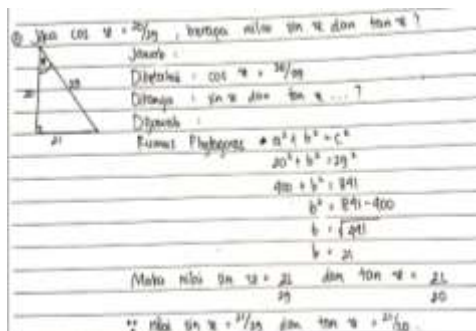 Jika cos α = 20/29, berapa nilai sin α dan tan α ?
Jawab :
Diketahui : cos α = 20/29
Ditanya : sin α dan tan α ... ?
Dijawab :
Rumus Phytagoras • a² + b² = c²
20² + b² = 29²
400 + b² = 841
b² = 841 - 400
b = √441
b = 21
Maka nilai sin α = 21/29 dan tan α = 21/20
∴ nilai sin α = 21/29 dan tan α = 21/20
20
29
21